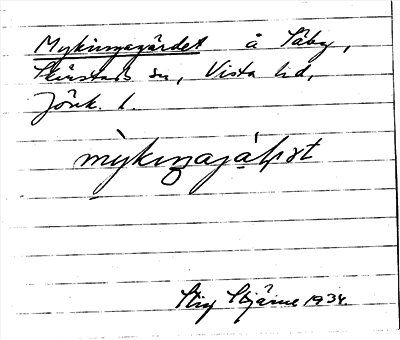 Mykingagärdet å Säby,
Skärstads sn, Vista hd,
Jönk. l.
mỳkiŋajáḷpət
Stig Stjärne 1934.